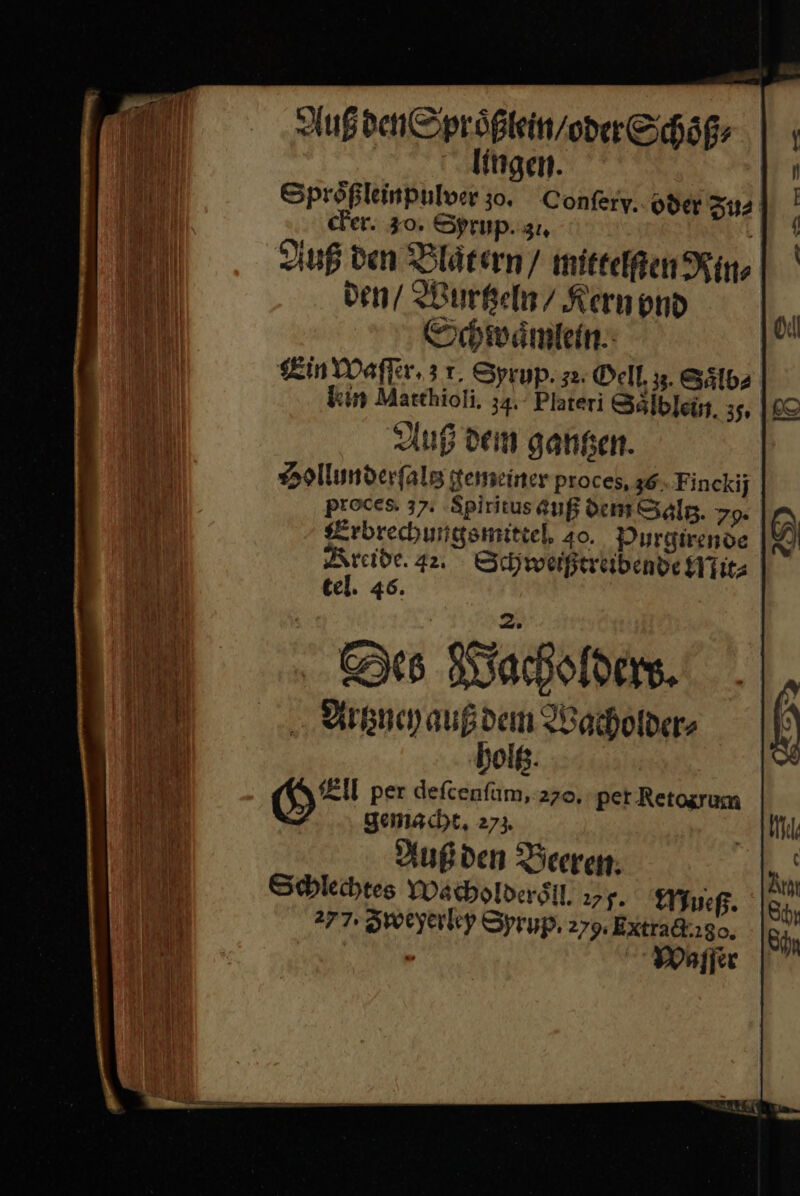 Auß den Sprößlein/oder Schöß⸗
lingen.
Sprößleinpulver 30. Conſerv. oder Zu⸗
cker. 30. Syrup. 31.
Auß den Blätern/ mittelſten Rin⸗
den/ Wurtzeln/ Kern vnd
Schwämlein.
Ein Waſſer. 31. Syrup. 32. Oell. 33. Sälb⸗
lein Matthioli. 34. Plateri Sälblein. 35.
Auß dem gantzen.
Hollunderſaltz gemeiner proces, 36. Finckij
proces. 37. Spiritus auß dem Saltz. 79.
Erbrechungsmittel. 40. Purgirende
Kreide. 42. Schweißtreibende Mit⸗
tel. 46.
2.
Des Wacholders.
Artzney auß dem Wacholder⸗
holtz.
OEll per deſcenſum, 270. per Retogrum
gemacht. 273.
Auß den Beeren.
Schlechtes Wacholderöll. 275. Mueß.
277. Zweyerley Syrup. 279. Extract. 280.
Waſſer